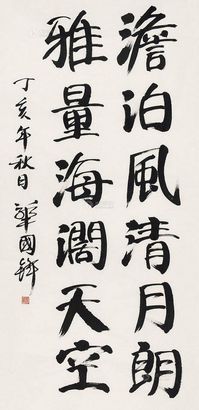 澹泊風清月朗
雅量海濶天空
丁亥年秋日 華國鋒